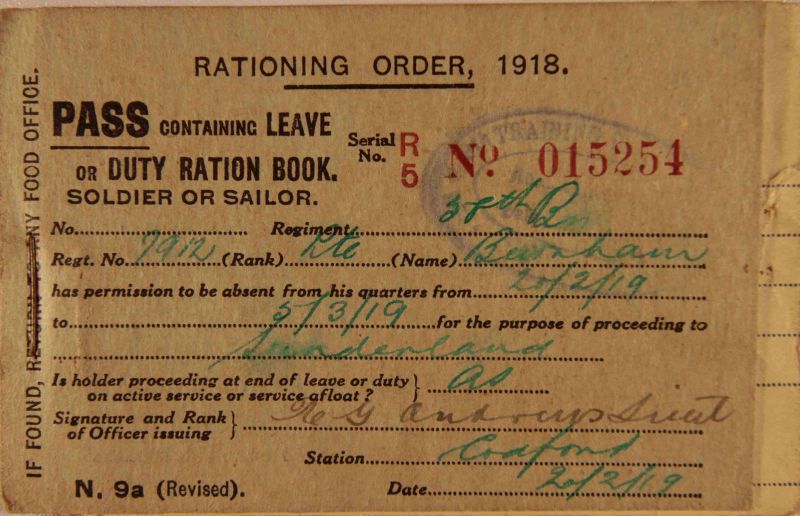 RATIONING ORDER, 1918.
PASS CONTAINING LEAVE
OR DUTY RATION BOOK.
SOLDIER OR SAILOR.
Serial No. R 5 No 015254
TRAINING
No. Regiment 38th Bn
Regt. No. 7912 (Rank) Pte (Name) Burnham
has permission to be absent from his quarters from 20/2/19
to 5/3/19 for the purpose of proceeding to
Sunderland
Is holder proceeding at end of leave or duty
on active service or service afloat? AS
Signature and Rank
of Officer issuing G Andrews Lieut
Station Codford
N. 9a (Revised). Date 20/2/19
IF FOUND, RETURN TO ANY FOOD OFFICE.